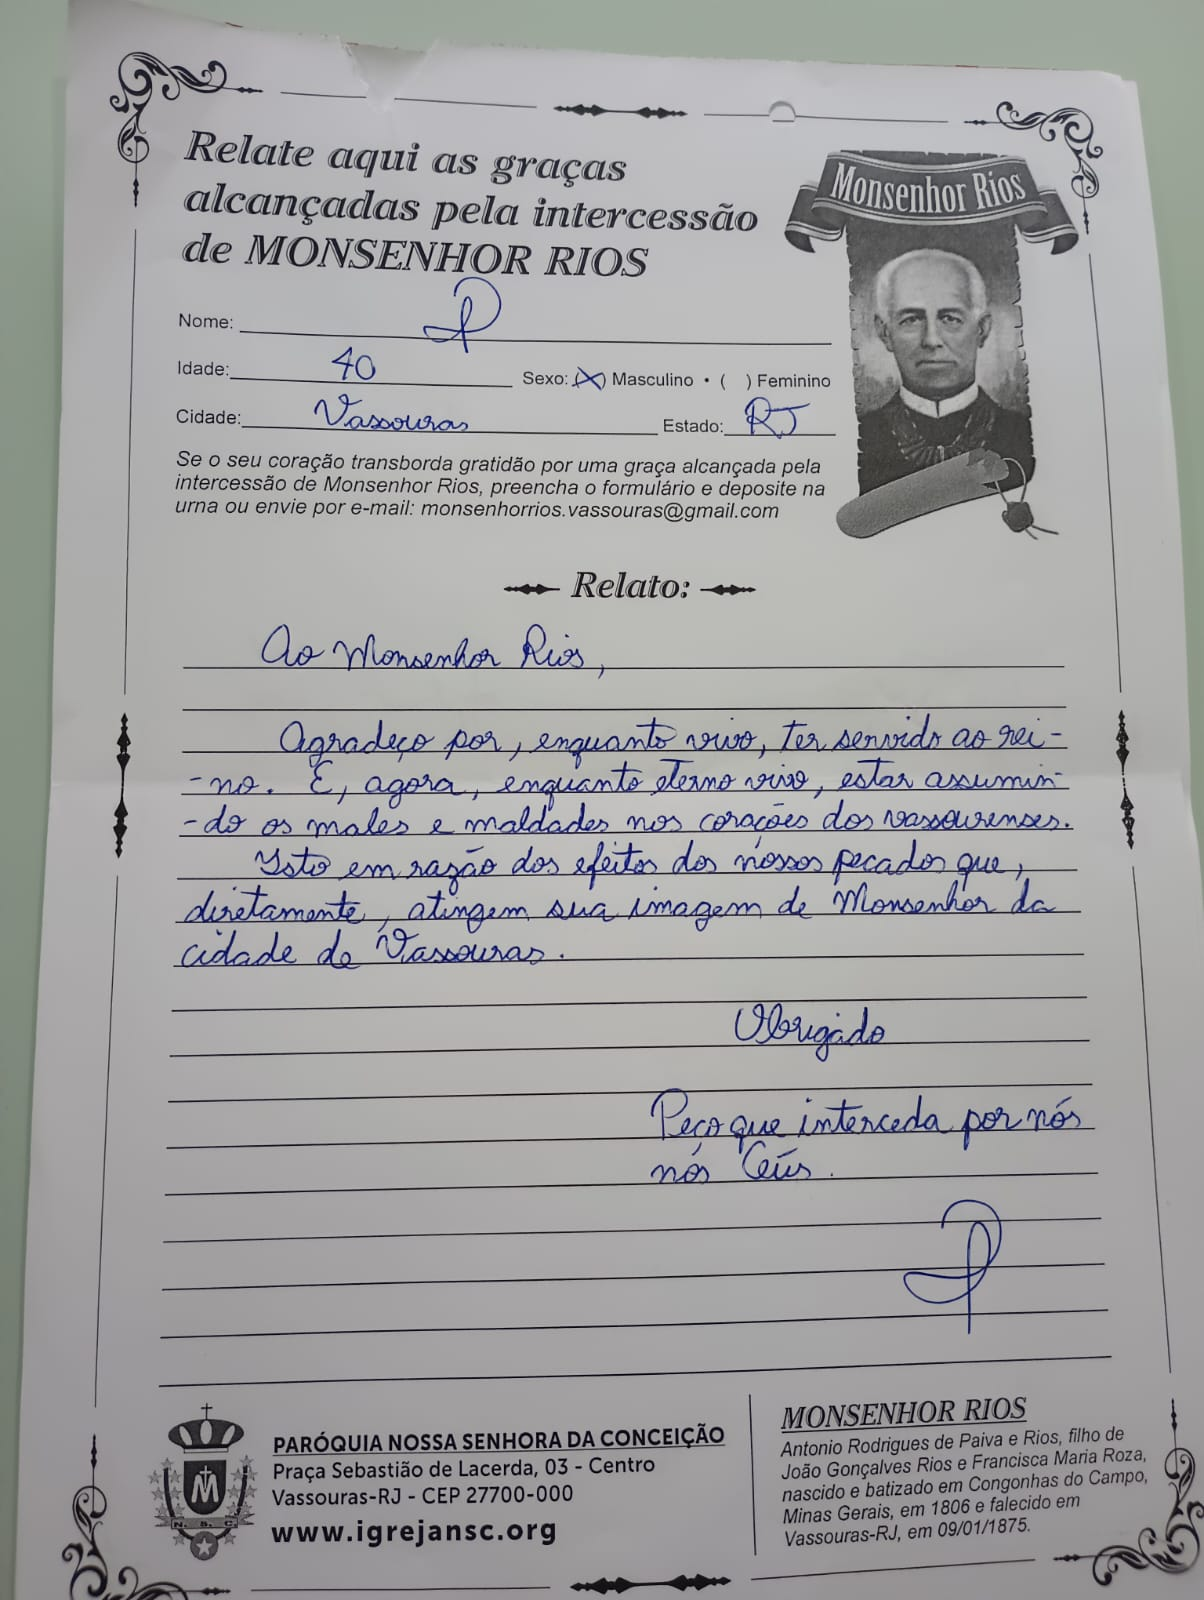 Relate aqui as graças
alcançadas pela intercessão
de MONSENHOR RIOS
Monsenhor Rios
Nome: P
Idade: 40 Sexo: (X) Masculino • ( ) Feminino
Cidade: Vassouras Estado: RJ
Se o seu coração transborda gratidão por uma graça alcançada pela
intercessão de Monsenhor Rios, preencha o formulário e deposite na
urna ou envie por e-mail: monsenhorrios.vassouras@gmail.com
Relato:
Ao Monsenhor Rios,
Agradeço por, enquanto vivo, ter servido ao rei-
-no. E, agora, enquanto eterno vivo, estar assumin-
-do os males e maldades nos corações dos vassourenses.
Isto em razão dos efeitos dos nossos pecados que,
diretamente, atingem sua imagem de Monsenhor da
cidade de Vassouras.
Obrigado
Peço que interceda por nós
nós Céus.
P
N. S. C.
PARÓQUIA NOSSA SENHORA DA CONCEIÇÃO
Praça Sebastião de Lacerda, 03 - Centro
Vassouras-RJ - CEP 27700-000
www.igrejansc.org
MONSENHOR RIOS
Antonio Rodrigues de Paiva e Rios, filho de
João Gonçalves Rios e Francisca Maria Roza,
nascido e batizado em Congonhas do Campo,
Minas Gerais, em 1806 e falecido em
Vassouras-RJ, em 09/01/1875.